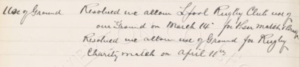 Use of Ground Resolved we allow L'pool Rugby Club use of
our Ground on March 14th for their match
Resolved we allow use of Ground for Rugby
Charity match on April 18th